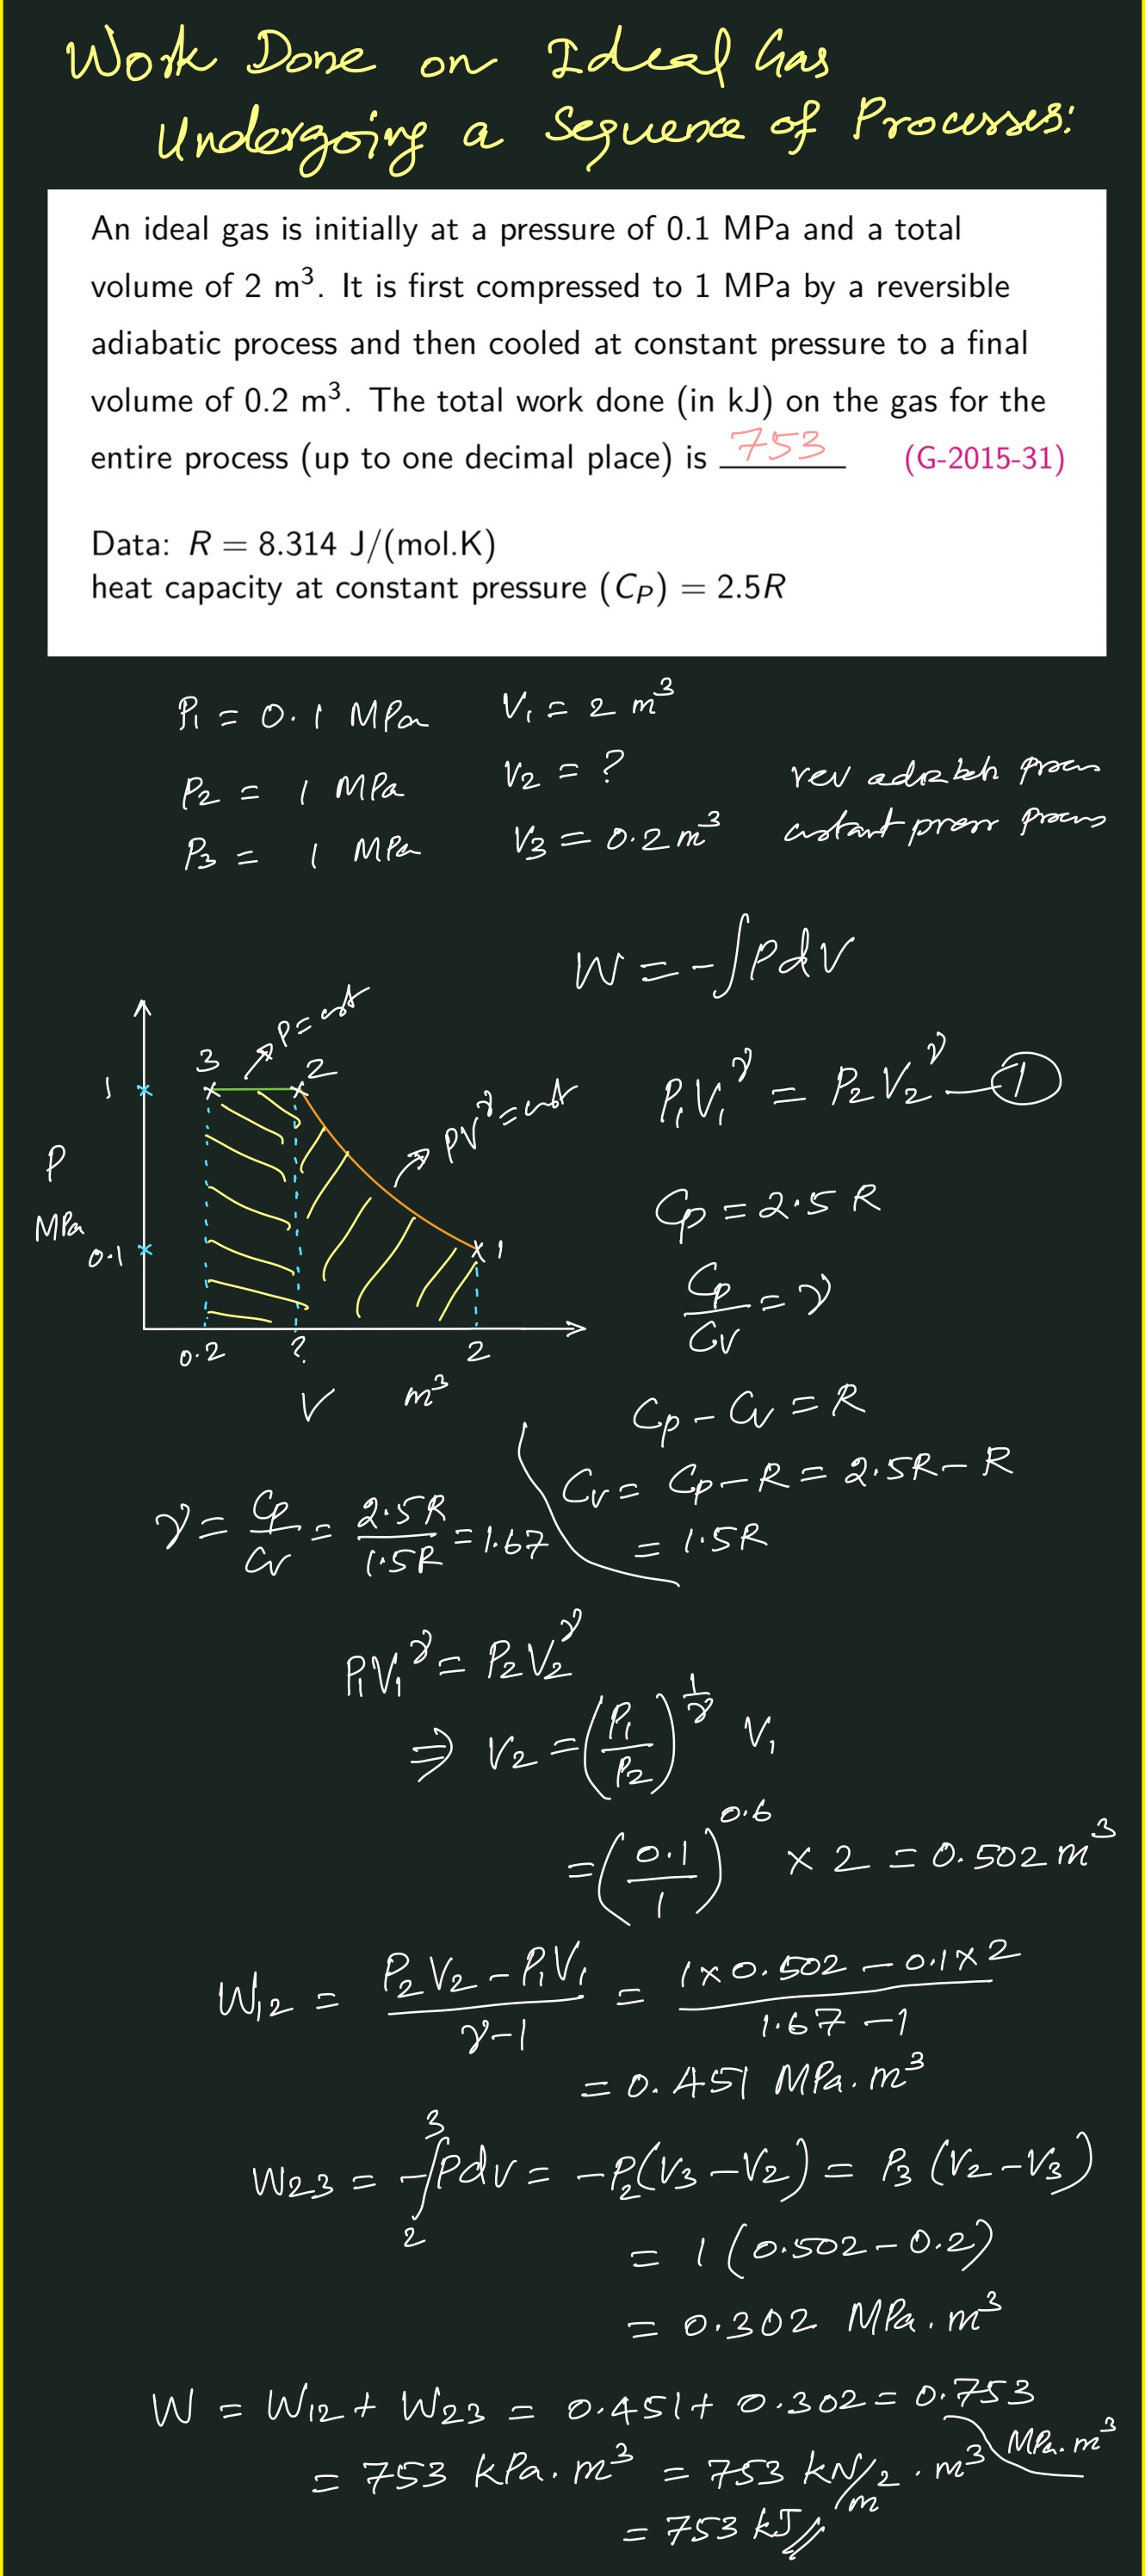 Work Done on Ideal Gas
Undergoing a Sequence of Processes:
An ideal gas is initially at a pressure of 0.1 MPa and a total
volume of 2 m³. It is first compressed to 1 MPa by a reversible
adiabatic process and then cooled at constant pressure to a final
volume of 0.2 m³. The total work done (in kJ) on the gas for the
entire process (up to one decimal place) is 753 (G-2015-31)
Data: R = 8.314 J/(mol.K)
heat capacity at constant pressure (C_P) = 2.5R
P₁ = 0.1 MPa V₁ = 2 m³
P₂ = 1 MPa V₂ = ? rev
P₃ = 1 MPa V₃ = 0.2 m³
W = -∫PdV
P=
3 2
1
P₁V₁^γ = P₂V₂^γ — ①
PV^γ=
P
MPa
0.1
1
C_P = 2.5 R
C_P/C_V = γ
0.2 ? 2
V m³
C_P - C_V = R
C_V = C_P - R = 2.5R - R
= 1.5R
γ = C_P/C_V = 2.5R/1.5R = 1.67
P₁V₁^γ = P₂V₂^γ
⇒ V₂ = (P₁/P₂)^(1/γ) V₁
= (0.1/1)^0.6 × 2 = 0.502 m³
W₁₂ = (P₂V₂ - P₁V₁)/(γ-1) = (1×0.502 - 0.1×2)/(1.67-1)
= 0.451 MPa.m³
W₂₃ = -∫₂³PdV = -P₂(V₃-V₂) = P₃(V₂-V₃)
= 1(0.502-0.2)
= 0.302 MPa.m³
W = W₁₂ + W₂₃ = 0.451 + 0.302 = 0.753
MPa.m³
= 753 kPa.m³ = 753 kN/m².m³
= 753 kJ//